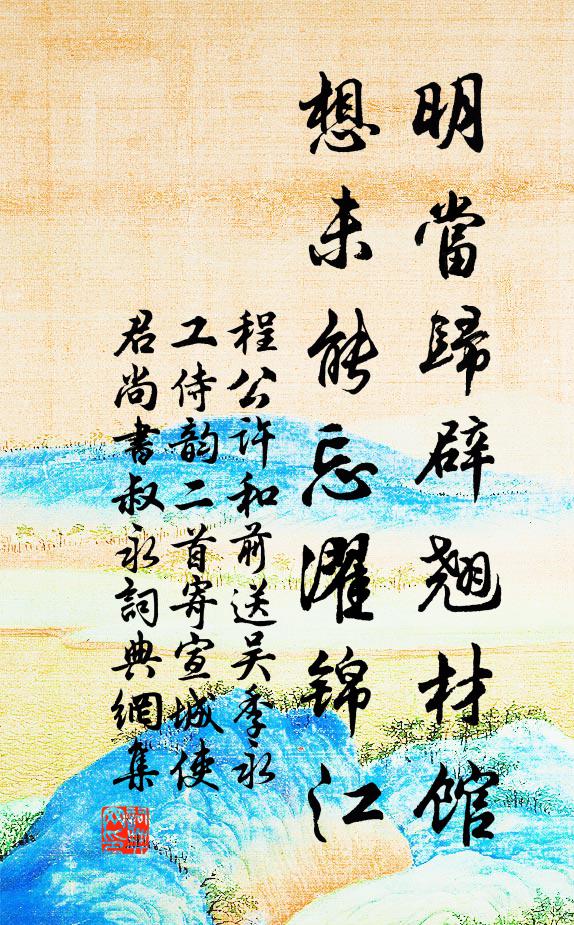 明當歸辟翹材館
想未能忘濯錦江
程公許和前送吳季永
工侍韵二首寄宣城使
君尚書叔永詞典網集